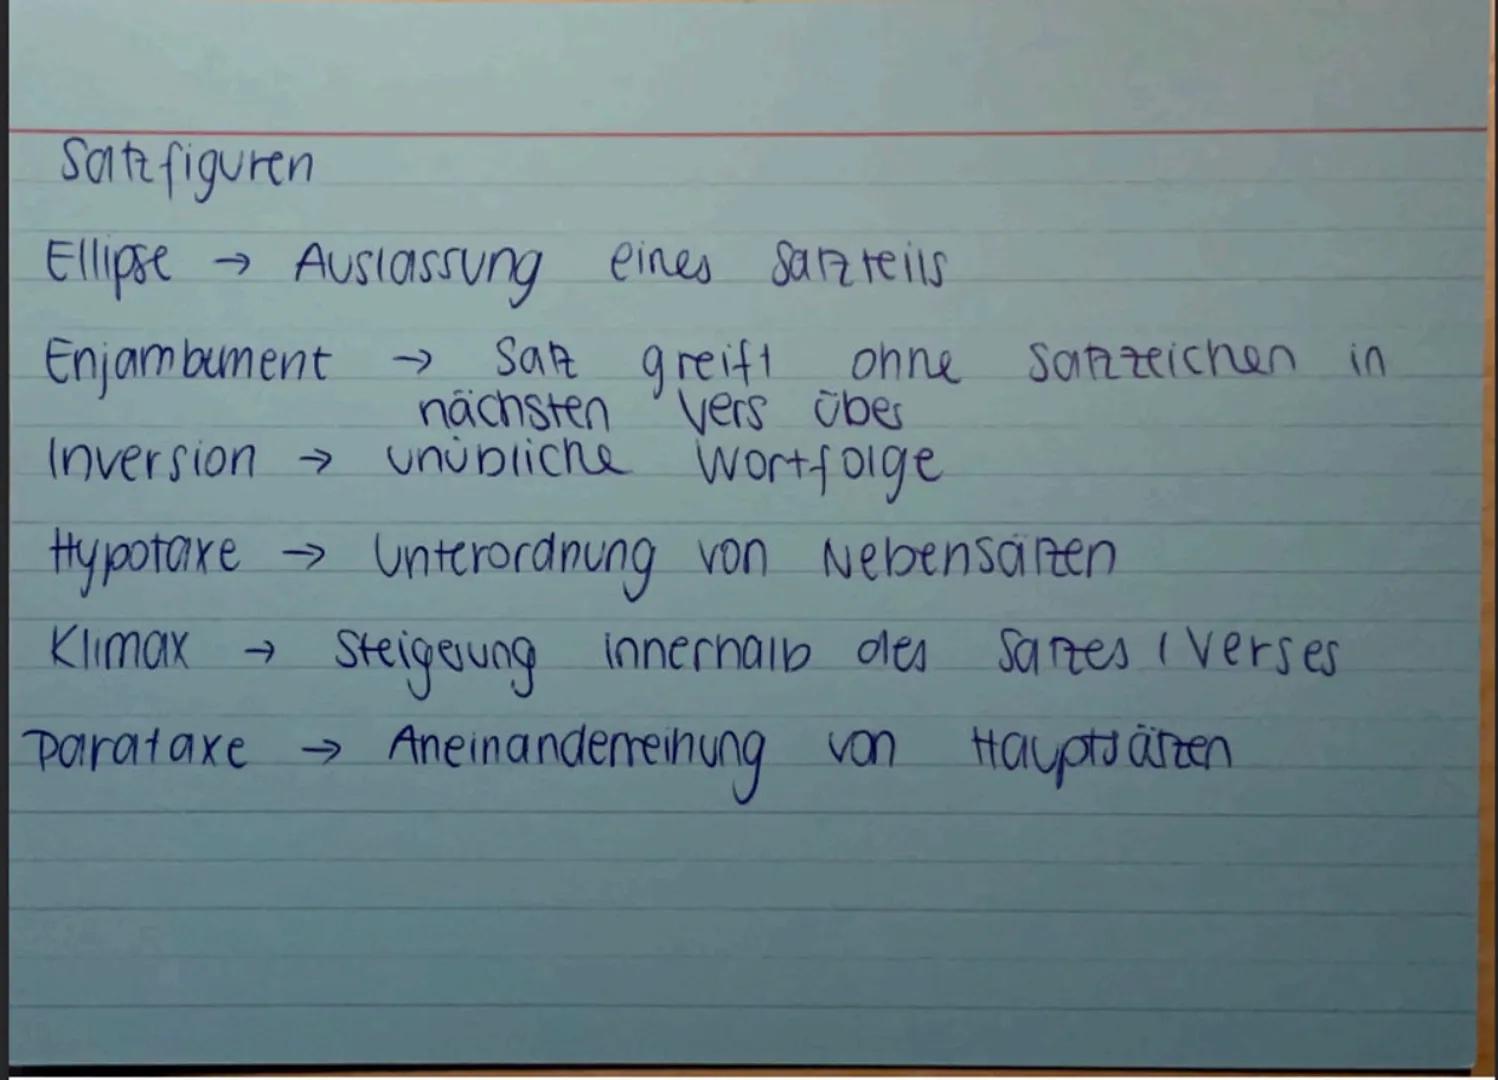 Satzfiguren
Ellipse → Auslassung eines Satzteils
Enjambement → Satz greift ohne Satzzeichen in
nächsten Vers über
Inversion → unübliche Wortfolge
Hypotaxe → Unterordnung von Nebensätzen
Klimax → Steigerung innerhalb des Satzes / Verses
Parataxe → Aneinanderreihung von Hauptsätzen